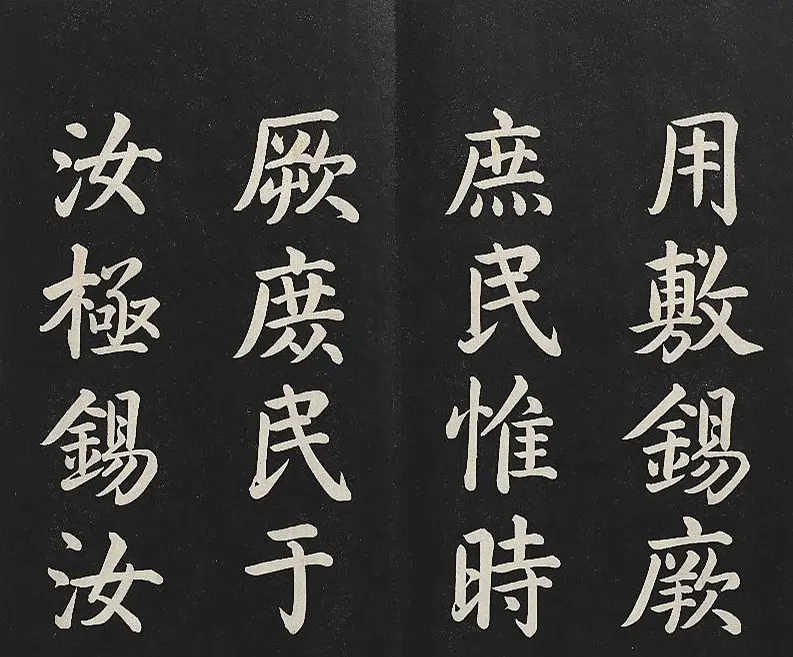 用敷錫厥
庶民惟時
厥庶民于
汝極錫汝